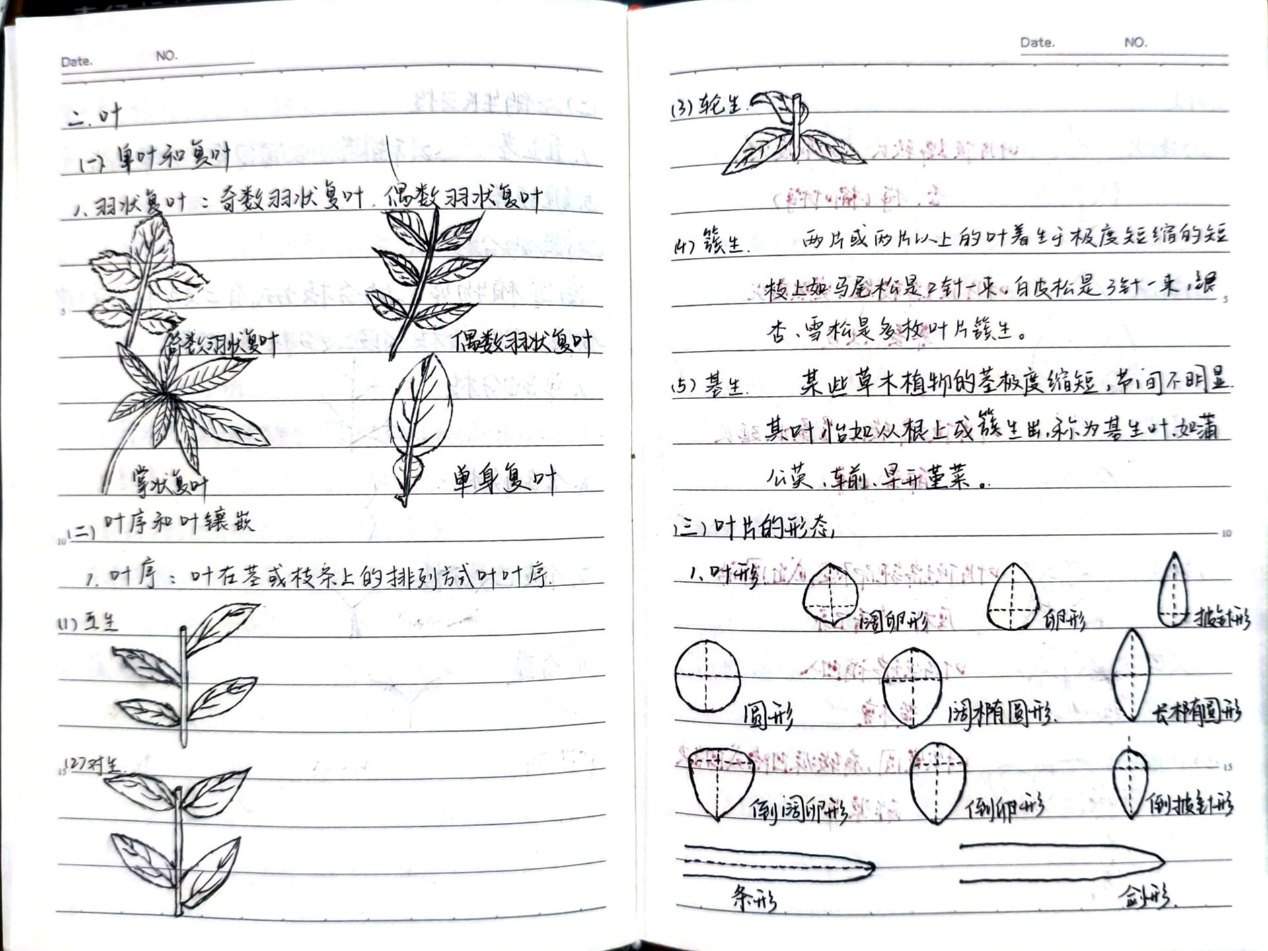 Date. NO.
二.叶
(一)单叶和复叶
1、羽状复叶：奇数羽状复叶、偶数羽状复叶
奇数羽状复叶
偶数羽状复叶
掌状复叶
单身复叶
(二)叶序和叶镶嵌
1、叶序：叶在茎或枝条上的排列方式叶叶序.
(1)互生
(2)对生
Date. NO.
(3)轮生.
(4)簇生. 两片或两片以上的叶着生于极度短缩的短
枝上如马尾松是2针一束,白皮松是3针一束,银
杏、雪松是多枚叶片簇生。
(5)基生. 某些草木植物的茎极度缩短,节间不明显.
其叶恰如从根上成簇生出,称为基生叶,如蒲
公英、车前、早开堇菜。
(三)叶片的形态,
1、叶形
阔卵形
卵形
披针形
圆形
阔椭圆形.
长椭圆形
倒阔卵形
倒卵形
倒披针形
条形
剑形.
5
10
15
5
10
15